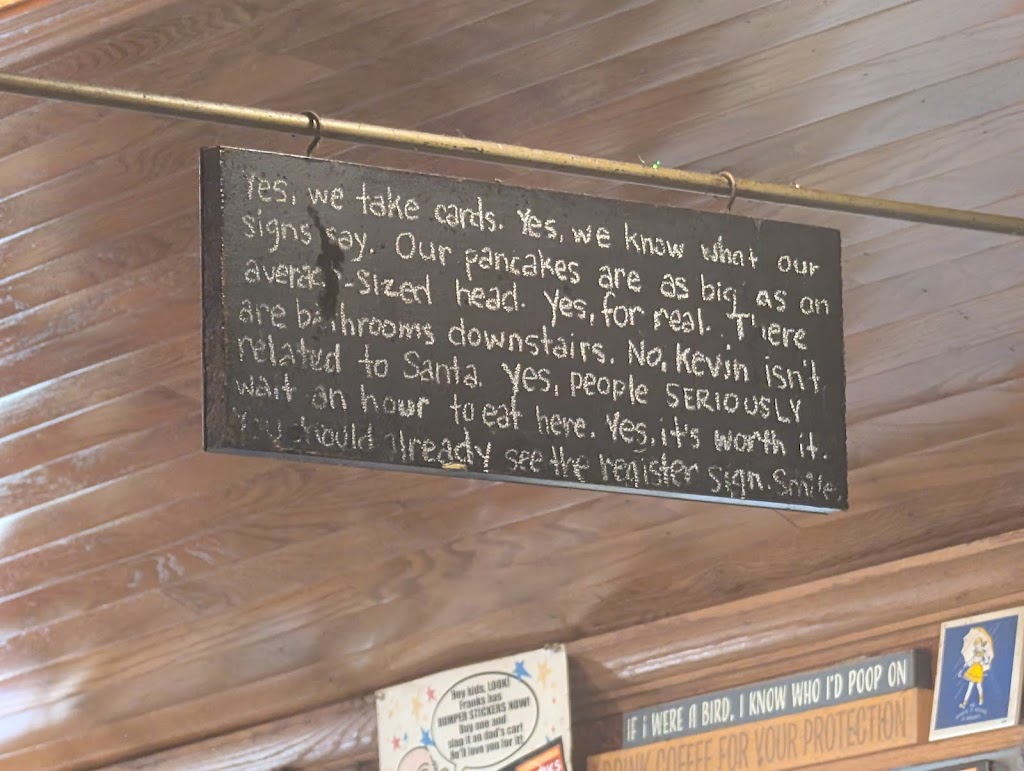 Yes, we take cards. Yes, we know what our
signs say. Our pancakes are as big as an
average-sized head. Yes, for real. There
are bathrooms downstairs. No, Kevin isn't
related to Santa. Yes, people SERIOUSLY
wait an hour to eat here. Yes, it's worth it.
You should already see the register sign. Smile.
Hey kids, LOOK!
Franks has
BUMPER STICKERS NOW!
Buy one and
slap it on dad's car!
He'll love you for it!
IF I WERE A BIRD, I KNOW WHO I'D POOP ON
DRINK COFFEE FOR YOUR PROTECTION